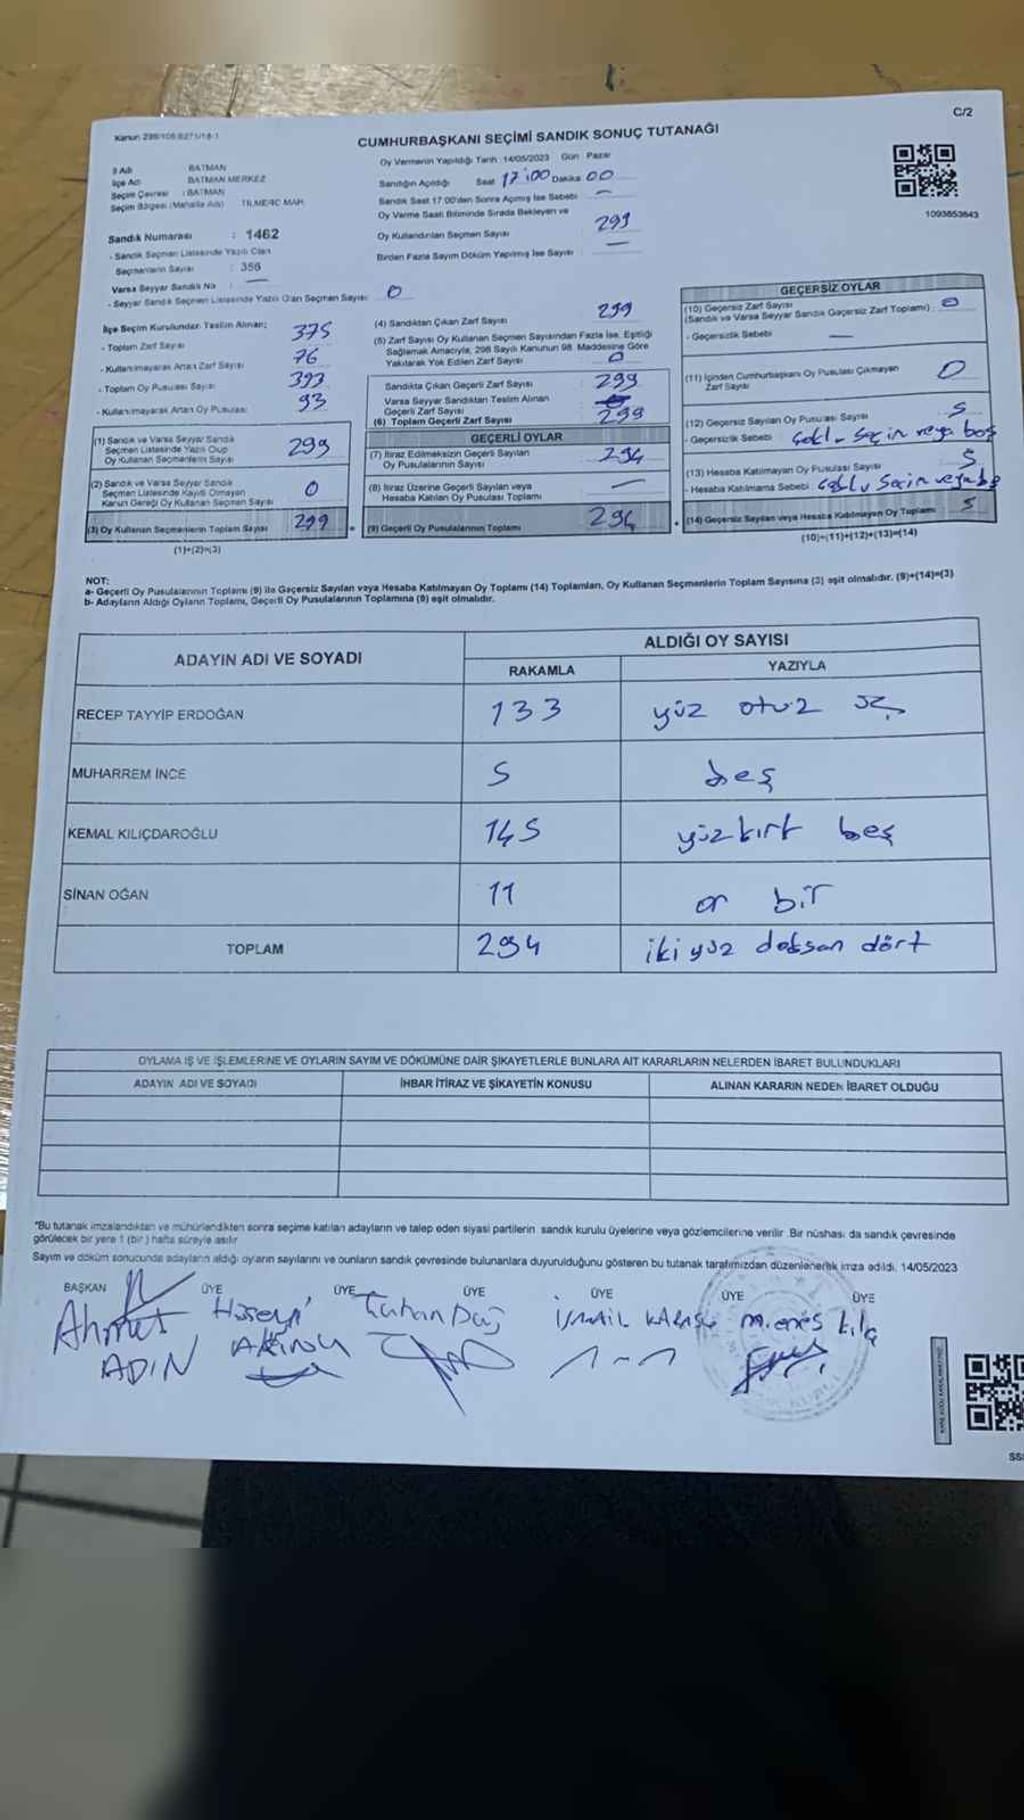 C/2
Kanun 298/105
CUMHURBAŞKANI SEÇİMİ SANDIK SONUÇ TUTANAĞI
Oy Vermenin Yapıldığı Tarih : 14/05/2023 Gün : Pazar
İl Adı BATMAN
İlçe Adı BATMAN MERKEZ
Seçim Çevresi : BATMAN
Seçim Bölgesi (Mahalle Adı)
Sandığın Açıldığı Saat 17:00 Dakika 00
Sandık Saat 17.00'den Sonra Açılmış İse Sebebi —
Oy Verme Saati Bitiminde Sırada Bekleyen ve
Oy Kullandırılan Seçmen Sayısı 299
Birden Fazla Sayım Döküm Yapılmış İse Sayısı —
1093853843
Sandık Numarası : 1462
- Sandık Seçmen Listesinde Yazılı Olan
Seçmenlerin Sayısı : 356
Varsa Seyyar Sandık No : —
- Seyyar Sandık Seçmen Listesinde Yazılı Olan Seçmen Sayısı 0
İlçe Seçim Kurulundan Teslim Alınan;
- Toplam Zarf Sayısı 375
- Kullanılmayarak Artan Zarf Sayısı 76
- Toplam Oy Pusulası Sayısı 393
- Kullanılmayarak Artan Oy Pusulası 93
(1) Sandık ve Varsa Seyyar Sandık
Seçmen Listesinde Yazılı Olup
Oy Kullanan Seçmenlerin Sayısı 299
(2) Sandık ve Varsa Seyyar Sandık
Seçmen Listesinde Kayıtlı Olmayan
Kanun Gereği Oy Kullanan Seçmen Sayısı 0
(3) Oy Kullanan Seçmenlerin Toplam Sayısı 299
(1)+(2)=(3)
(4) Sandıktan Çıkan Zarf Sayısı 299
(5) Zarf Sayısı Oy Kullanan Seçmen Sayısından Fazla İse, Eşitliği
Sağlamak Amacıyla, 298 Sayılı Kanunun 98. Maddesine Göre
Yakılarak Yok Edilen Zarf Sayısı 0
Sandıkta Çıkan Geçerli Zarf Sayısı 299
Varsa Seyyar Sandıktan Teslim Alınan
Geçerli Zarf Sayısı
(6) Toplam Geçerli Zarf Sayısı 299
GEÇERLİ OYLAR
(7) İtiraz Edilmeksizin Geçerli Sayılan
Oy Pusulalarının Sayısı 294
(8) İtiraz Üzerine Geçerli Sayılan veya
Hesaba Katılan Oy Pusulası Toplamı —
(9) Geçerli Oy Pusulalarının Toplamı 294
GEÇERSİZ OYLAR
(10) Geçersiz Zarf Sayısı
(Sandık ve Varsa Seyyar Sandık Geçersiz Zarf Toplamı) : 0
- Geçersizlik Sebebi —
(11) İçinden Cumhurbaşkanı Oy Pusulası Çıkmayan
Zarf Sayısı 0
(12) Geçersiz Sayılan Oy Pusulası Sayısı 5
- Geçersizlik Sebebi seçim veya boş
(13) Hesaba Katılmayan Oy Pusulası Sayısı 5
- Hesaba Katılmama Sebebi
(14) Geçersiz Sayılan veya Hesaba Katılmayan Oy Toplamı 5
(10)+(11)+(12)+(13)=(14)
NOT:
a- Geçerli Oy Pusulalarının Toplamı (9) ile Geçersiz Sayılan veya Hesaba Katılmayan Oy Toplamı (14) Toplamları, Oy Kullanan Seçmenlerin Toplam Sayısına (3) eşit olmalıdır. (9)+(14)=(3)
b- Adayların Aldığı Oyların Toplamı, Geçerli Oy Pusulalarının Toplamına (9) eşit olmalıdır.
ADAYIN ADI VE SOYADI
ALDIĞI OY SAYISI
RAKAMLA YAZIYLA
RECEP TAYYİP ERDOĞAN 133 yüz otuz üç
MUHARREM İNCE 5 beş
KEMAL KILIÇDAROĞLU 145 yüzkırk beş
SİNAN OĞAN 11 on bir
TOPLAM 294 iki yüz doksan dört
OYLAMA İŞ VE İŞLEMLERİNE VE OYLARIN SAYIM VE DÖKÜMÜNE DAİR ŞİKAYETLERLE BUNLARA AİT KARARLARIN NELERDEN İBARET BULUNDUKLARI
ADAYIN ADI VE SOYADI İHBAR İTİRAZ VE ŞİKAYETİN KONUSU ALINAN KARARIN NEDEN İBARET OLDUĞU
*Bu tutanak imzalandıktan ve mühürlendikten sonra seçime katılan adayların ve talep eden siyasi partilerin sandık kurulu üyelerine veya gözlemcilerine verilir. Bir nüshası da sandık çevresinde
görülecek bir yere 1 (bir) hafta süreyle asılır
Sayım ve döküm sonucunda adayların aldığı oyların sayılarını ve bunların sandık çevresinde bulunanlara duyurulduğunu gösteren bu tutanak tarafımızdan düzenlenerek imza edildi. 14/05/2023
BAŞKAN ÜYE ÜYE ÜYE ÜYE ÜYE ÜYE
Ahmet Hüseyi Dağ İSMAİL M.enes kılıç
ADIN